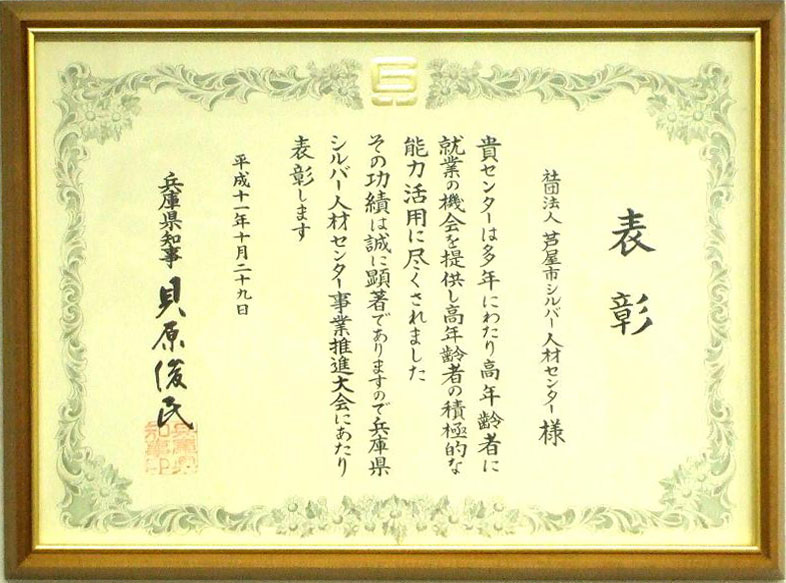 表彰
社団法人 芦屋市シルバー人材センター 様
貴センターは多年にわたり高年齢者に
就業の機会を提供し高年齢者の積極的な
能力活用に尽くされました
その功績は誠に顕著でありますので兵庫県
シルバー人材センター事業推進大会にあたり
表彰します
平成十一年十月二十九日
兵庫県知事 貝原俊民